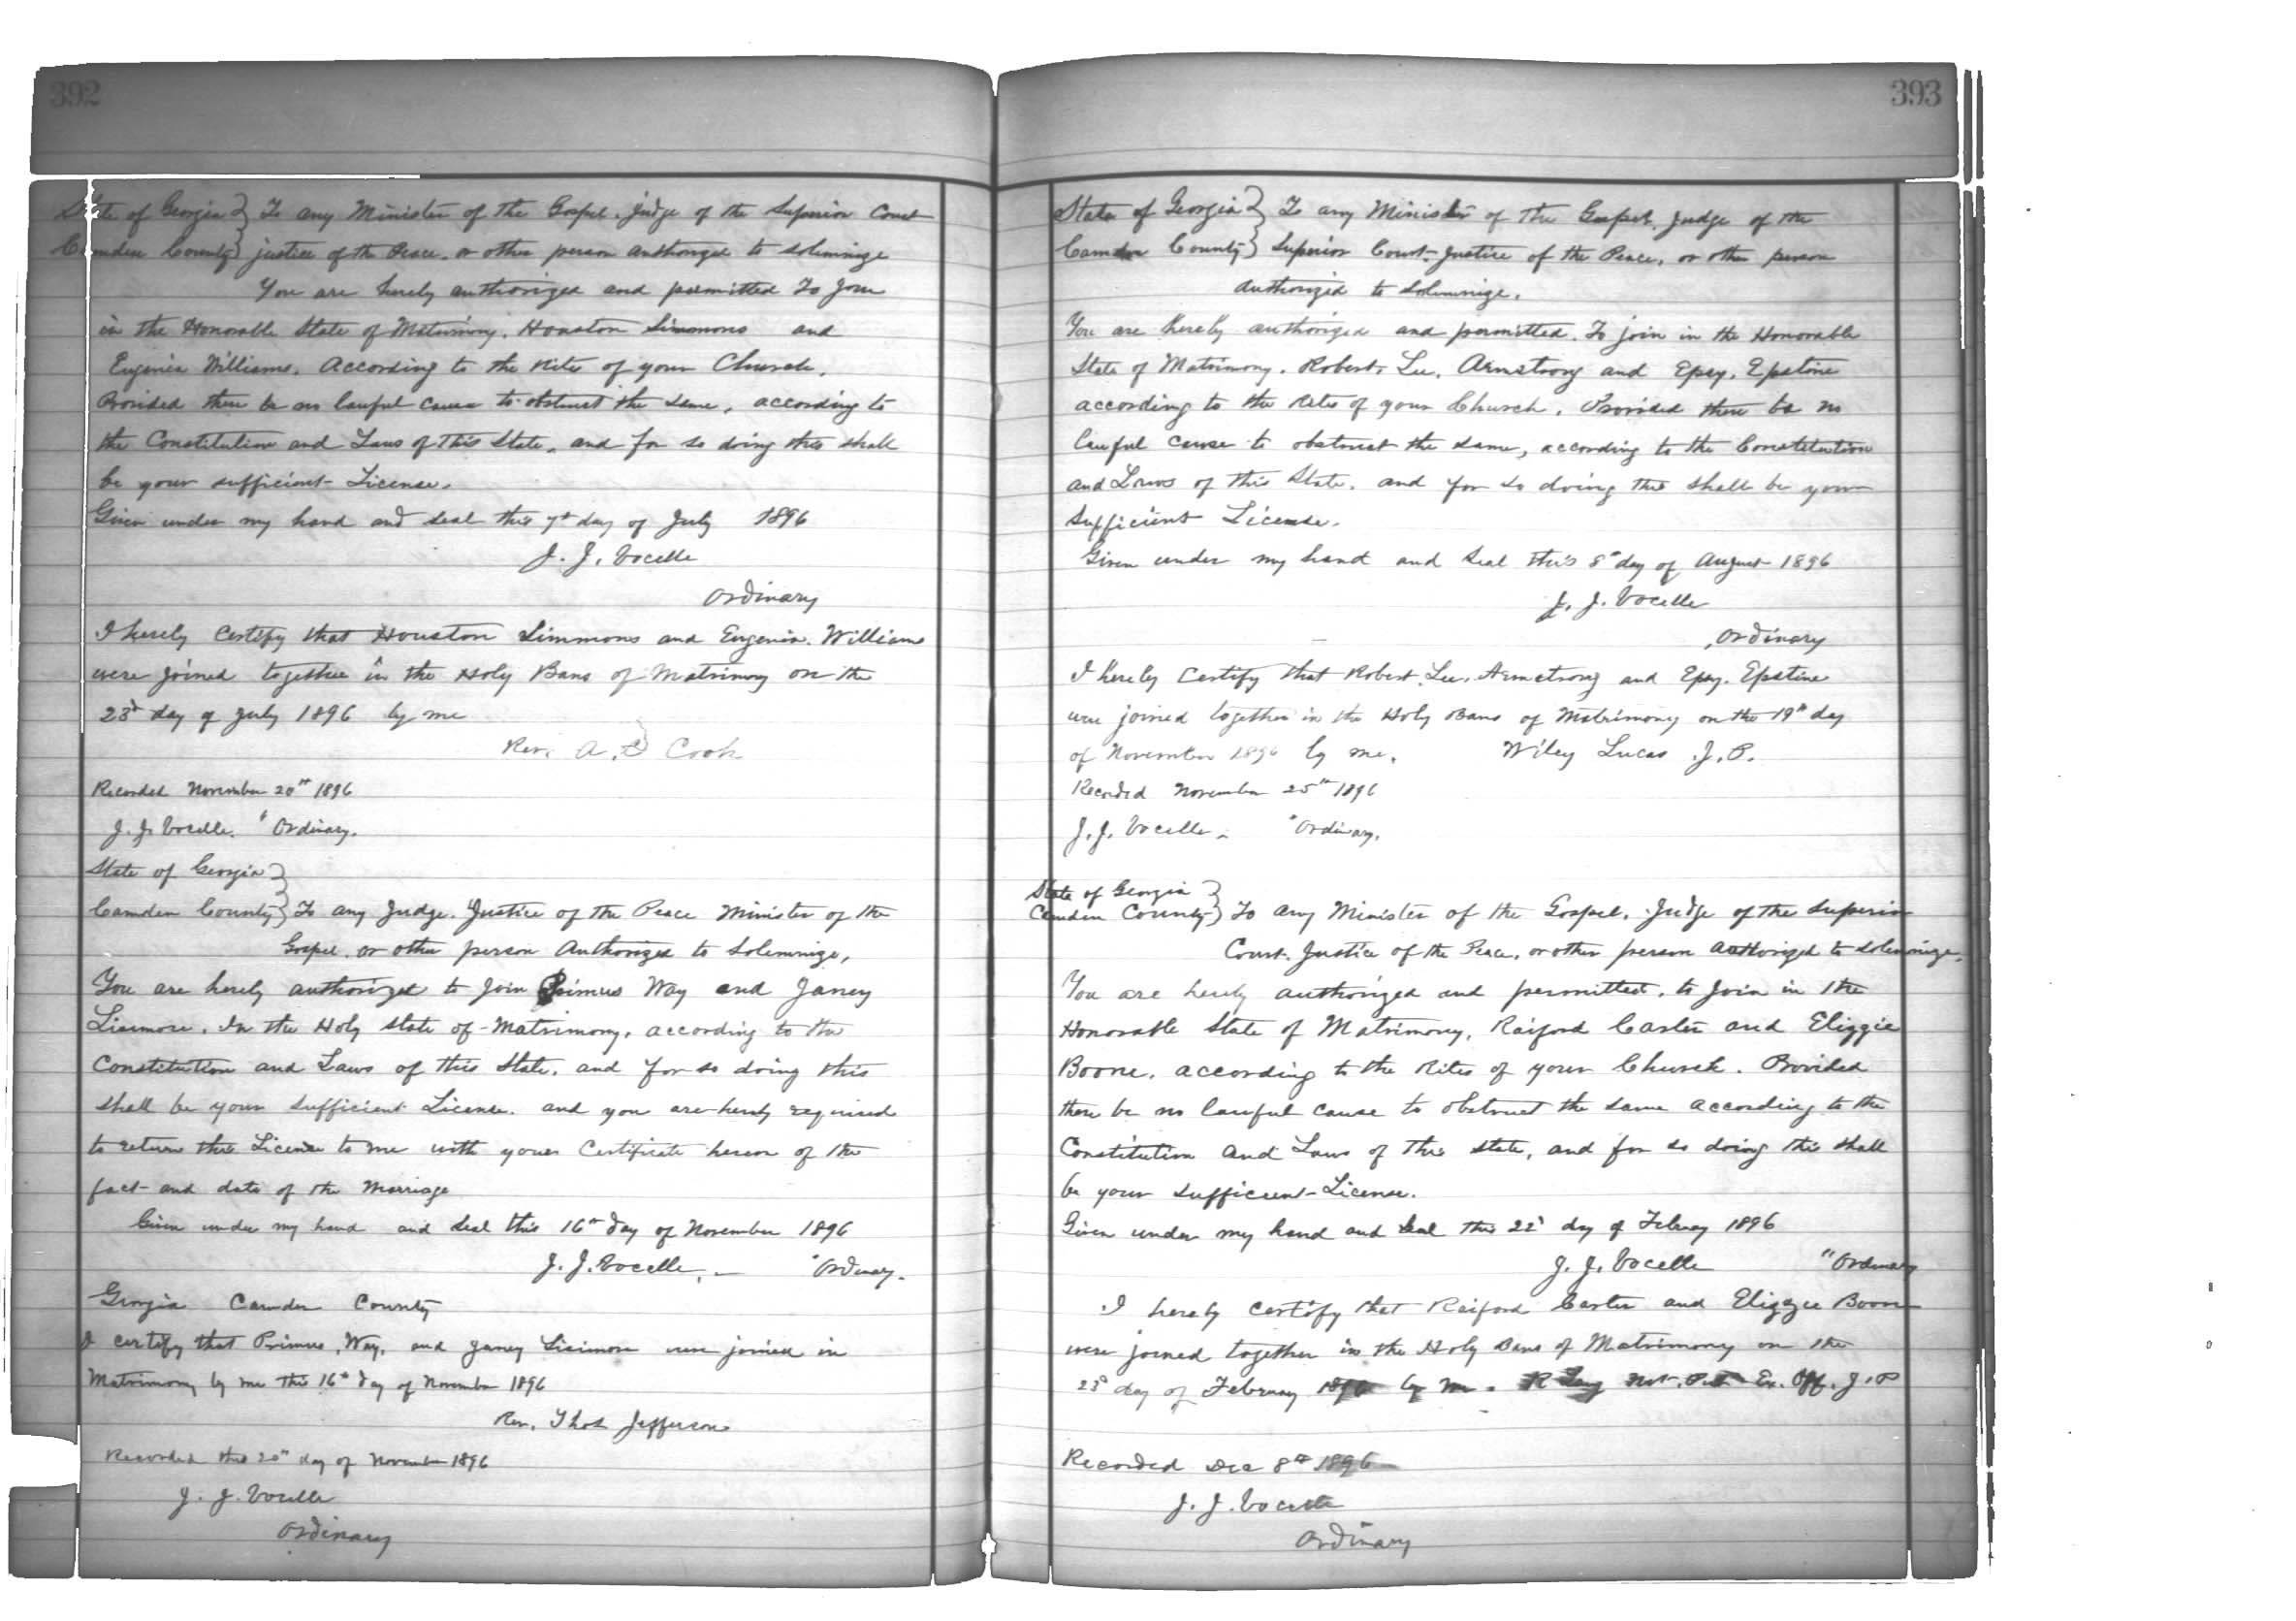 392
State of Georgia } To any Minister of the Gospel. Judge of the Superior Court
Camden County } justice of the Peace. or other person authorized to solemnize
You are hereby authorized and permitted To Join
in the Honorable State of Matrimony. Houston Simmons and
Eugenia Williams. According to the Rites of your Church.
Provided there be no lawful cause to obstruct the same, according to
the Constitution and Laws of this State. and for so doing this shall
be your sufficient License.
Given under my hand and seal this 7th day of July 1896
J. J. Vocelle
Ordinary
I hereby Certify that Houston Simmons and Eugenia. Williams
were joined together in the Holy Bans of Matrimony on the
23d day of July 1896 by me
Rev. A. Cook
Recorded November 20th 1896
J. J. Vocelle. "Ordinary.
State of Georgia }
Camden County } To any Judge. Justice of the Peace Minister of the
Gospel. or other person Authorized to Solemnize,
You are hereby authorized to Join Primus Way and Janey
Lisimore. In the Holy State of Matrimony, according to the
Constitution and Laws of this State. and for so doing this
shall be your sufficient License. and you are hereby required
to return this License to me with your Certificate hereon of the
fact and date of the Marriage
Given under my hand and seal this 16th day of November 1896
J. J. Vocelle. "Ordinary.
Georgia Camden County
I certify that Primus, Way, and Janey Lisimore were joined in
Matrimony by me this 16th day of November 1896
Rev. Thos Jefferson
Recorded this 20th day of November 1896
J. J. Vocelle
Ordinary
393
State of Georgia } To any Minister of the Gospel. Judge of the
Camden County } Superior Court. Justice of the Peace, or other person
Authorized to Solemnize.
You are hereby authorized and permitted. To join in the Honorable
State of Matrimony. Robert. Lee. Armstrong and Epsy. Epstine
according to the Rites of your Church. Provided there be no
lawful cause to obstruct the same, according to the Constitution
and Laws of this State. and for so doing this shall be your
Sufficient License.
Given under my hand and Seal this 8th day of August 1896
J. J. Vocelle
Ordinary
I hereby Certify that Robert. Lee. Armstrong and Epsy. Epstine
were joined together in the Holy Bans of Matrimony on the 19th day
of November 1896 by me. Wiley Lucas J. P.
Recorded November 25th 1896
J. J. Vocelle "Ordinary.
State of Georgia }
Camden County } To any Minister of the Gospel. Judge of the Superior
Court. Justice of the Peace, or other person authorized to solemnize.
You are hereby authorized and permitted. to Join in the
Honorable State of Matrimony, Raiford Carter and Elizzie
Boone. according to the Rites of your Church. Provided
there be no lawful cause to obstruct the same according to the
Constitution and Laws of this State, and for so doing this shall
be your sufficient License.
Given under my hand and Seal this 22d day of Febuary 1896
J. J. Vocelle "Ordinary
I hereby certify that Raiford Carter and Elizzie Boone
were joined together in the Holy Bans of Matrimony on the
23d day of February 1896 by me. R Not. Pub Ex. Off. J. P
Recorded Dec 8th 1896
J. J. Vocelle
Ordinary